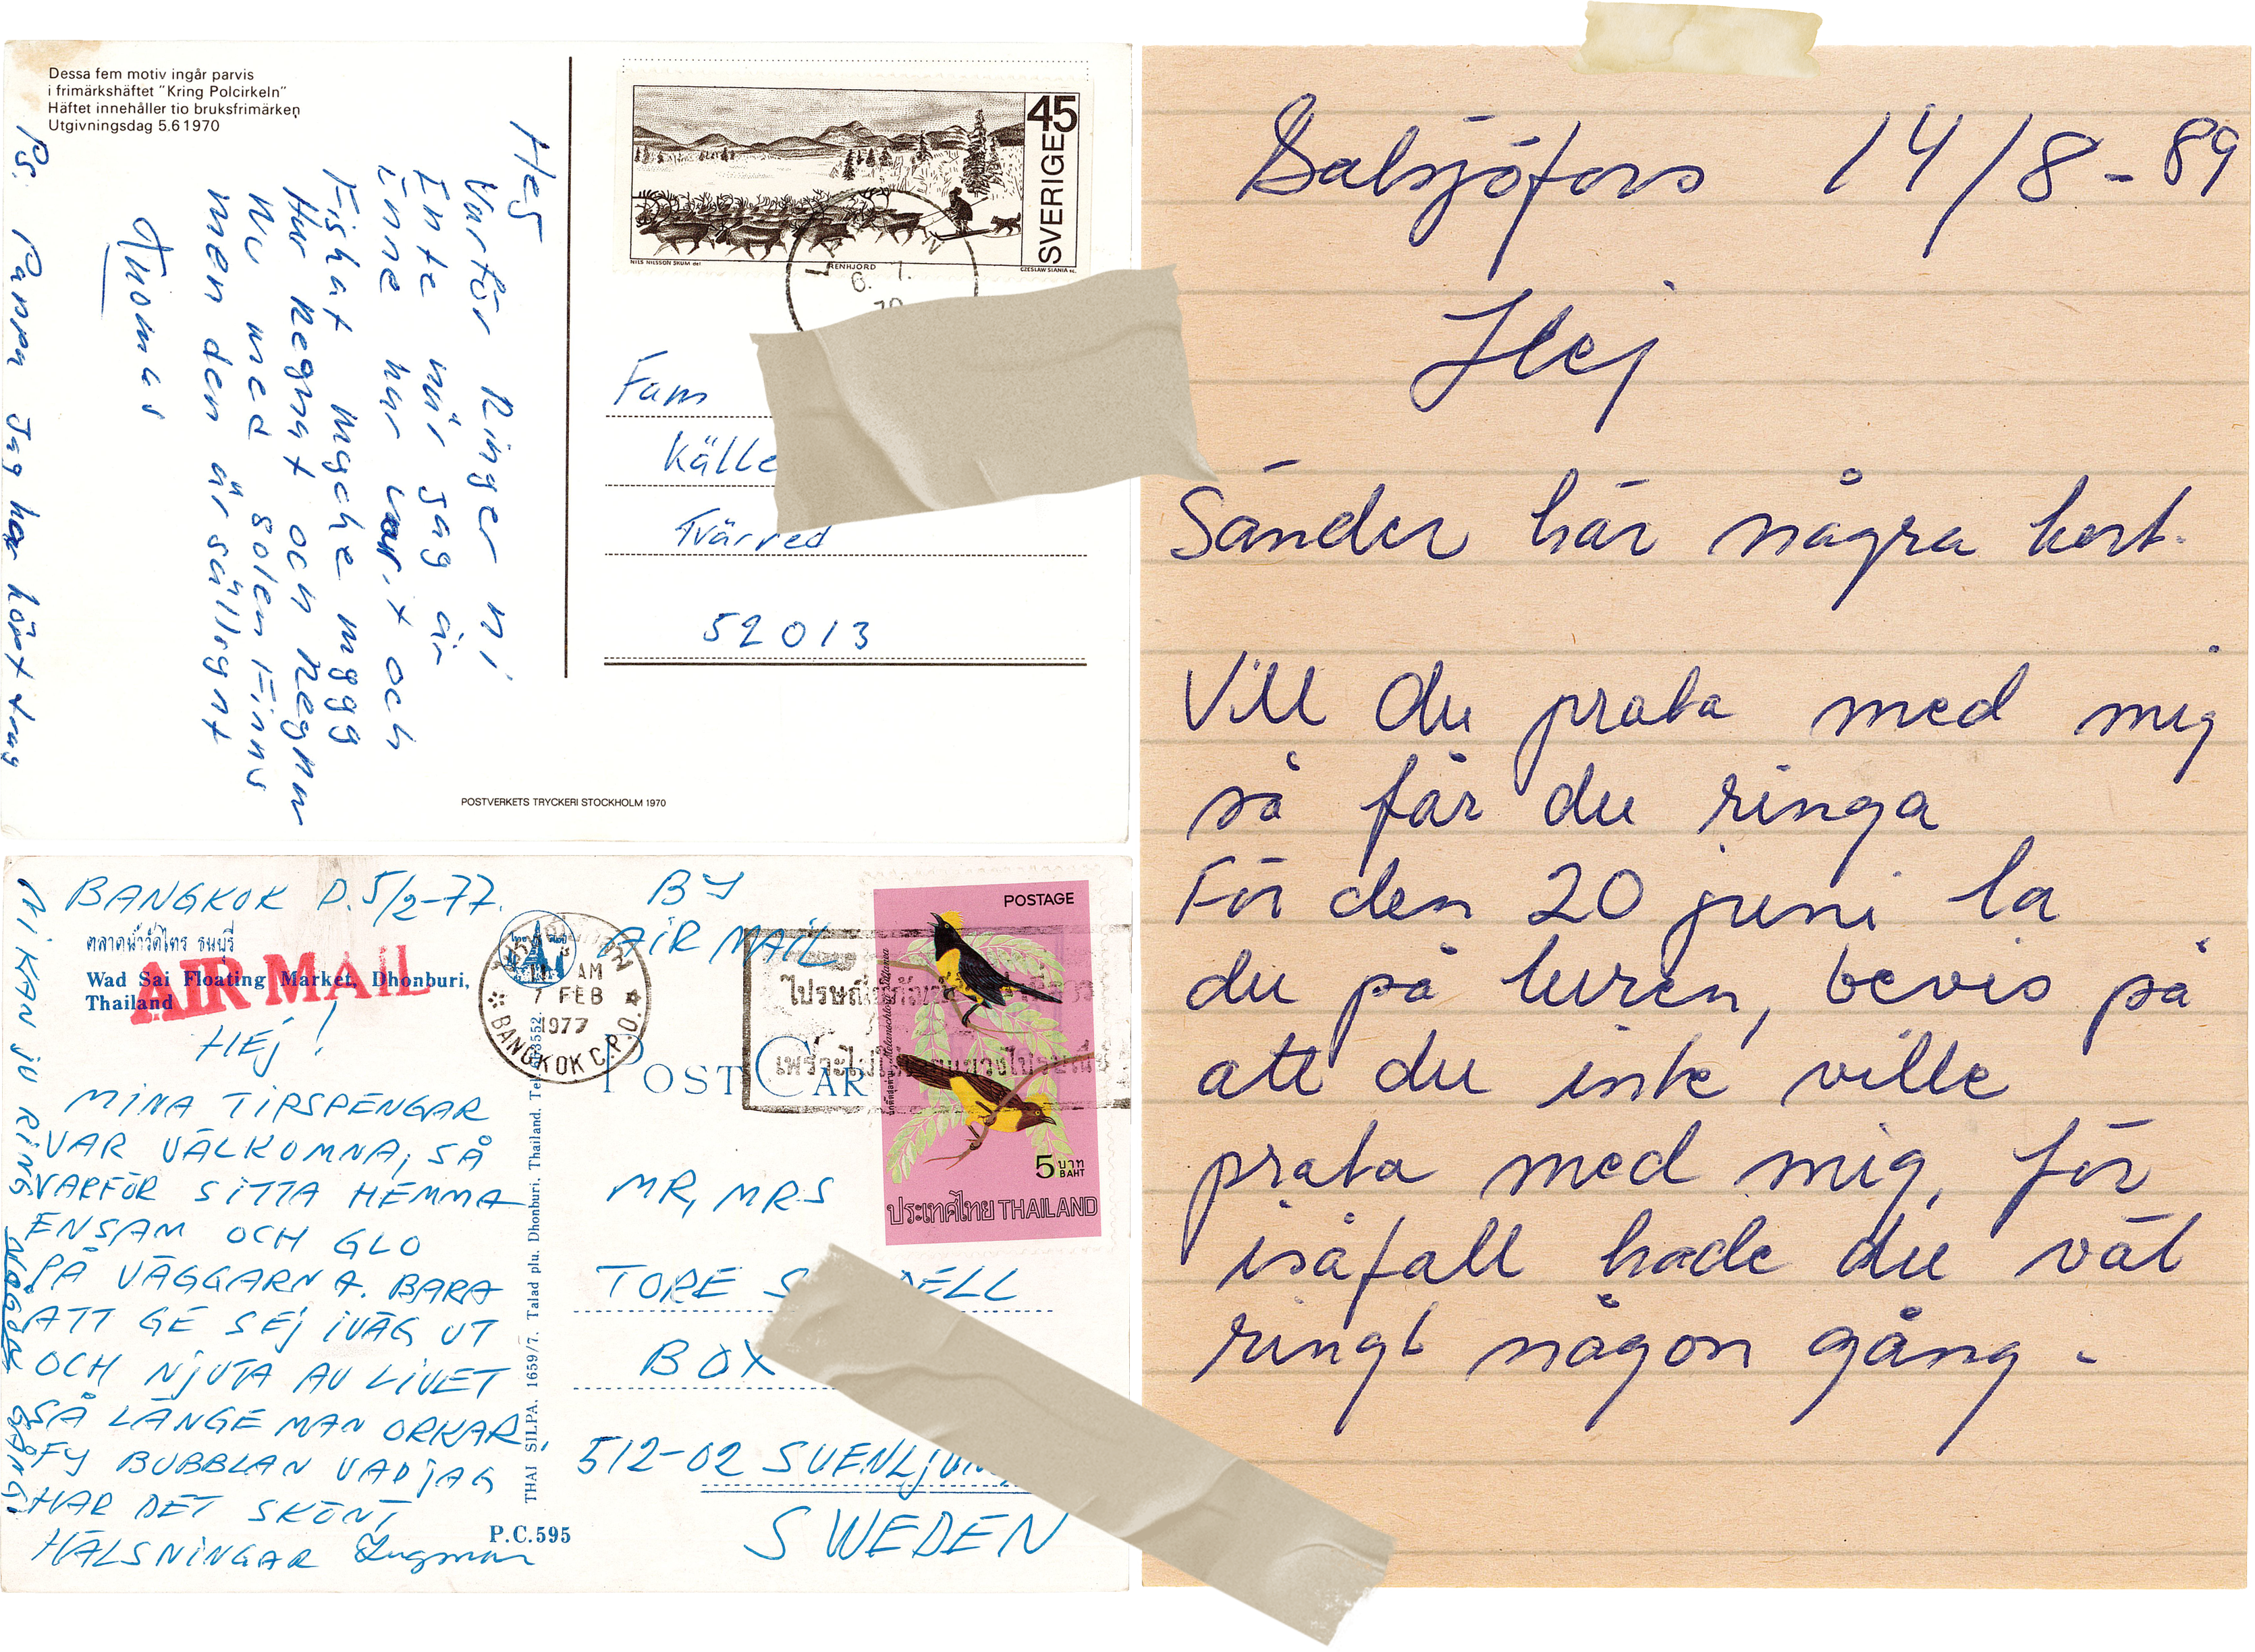 Dessa fem motiv ingår parvis
i frimärkshäftet "Kring Polcirkeln"
Häftet innehåller tio bruksfrimärken
Utgivningsdag 5.6 1970
Hej
Varför Ringer ni
Inte när jag är
inne har varit och
Fiskat mycke mygg
Har Regnat och Regnar
nu med solen Finns
men den är sällsynt
Tuomas
PS. Pappa Jag har kört tmg
45
SVERIGE
NILS NILSSON SKUM del
RENHJORD
CZESLAW SLANIA sc.
6. 7.
Fam
Källe
Tvärred
52013
POSTVERKETS TRYCKERI STOCKHOLM 1970
BANGKOK D. 5/2-77.
ตลาดน้ำวัดไทร ธนบุรี
Wad Sai Floating Market, Dhonburi,
Thailand
AIR MAIL
HEJ!
MINA TIPSPENGAR
VAR VÄLKOMNA, SÅ
VARFÖR SITTA HEMMA
ENSAM OCH GLO
PÅ VÄGGARNA. BARA
ATT GE SEJ IVÄG UT
OCH NJUTA AV LIVET
SÅ LÄNGE MAN ORKAR,
FY BUBBLAN VAD JAG
HAR DET SKÖNT
HÄLSNINGAR Ingmar
NI KAN JU RING NÅGON GÅNG!
THAI SILPA, 1659/7. Talad plu. Dhonburi, Thailand. Tel.
P.C.595
AM
7 FEB
1977
BANGKOK C.P.O.
BY
AIR MAIL
POST CAR
POSTAGE
5 บาท
BAHT
ประเทศไทย THAILAND
MR, MRS
TORE S DELL
BOX
512-02 SVENLJUN
SWEDEN
Dalsjöfors 14/8-89
Hej
Sänder här några kort.
Vill du prata med mig
så får du ringa
För den 20 juni la
du på luren, bevis på
att du inte ville
prata med mig, för
isåfall hade du väl
ringt någon gång.